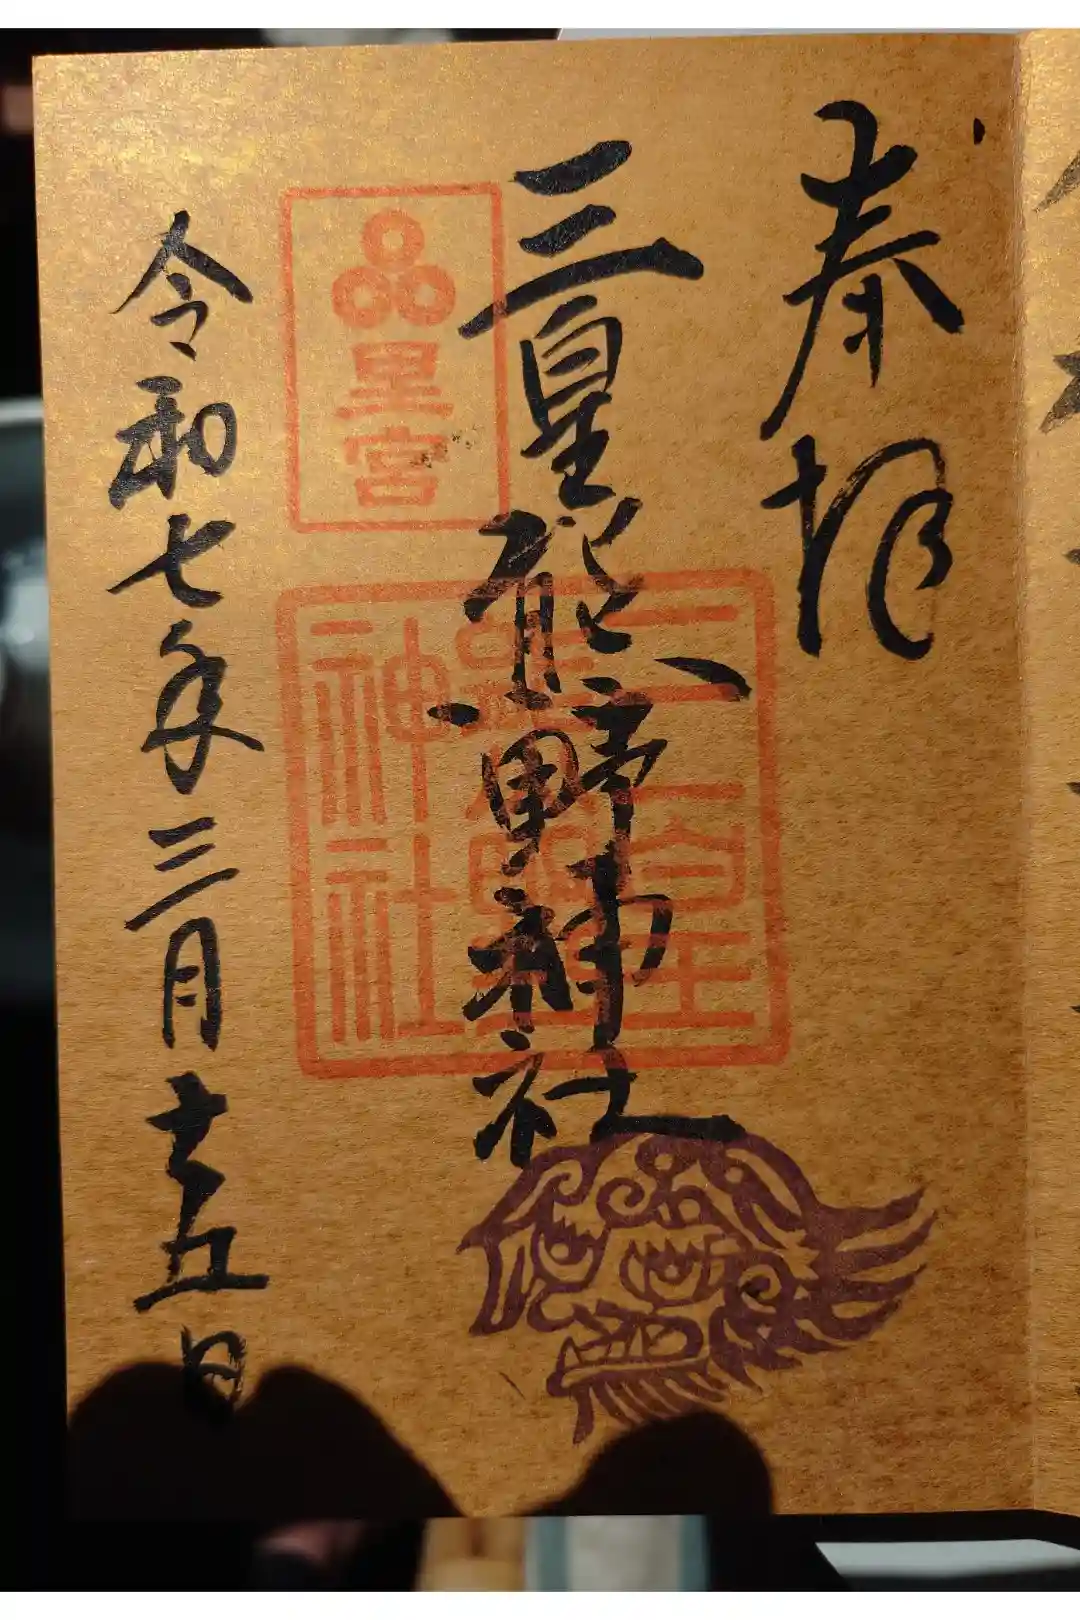 奉拝
三皇熊野神社
里宮
三皇
熊野
神社
令和七年三月十五日